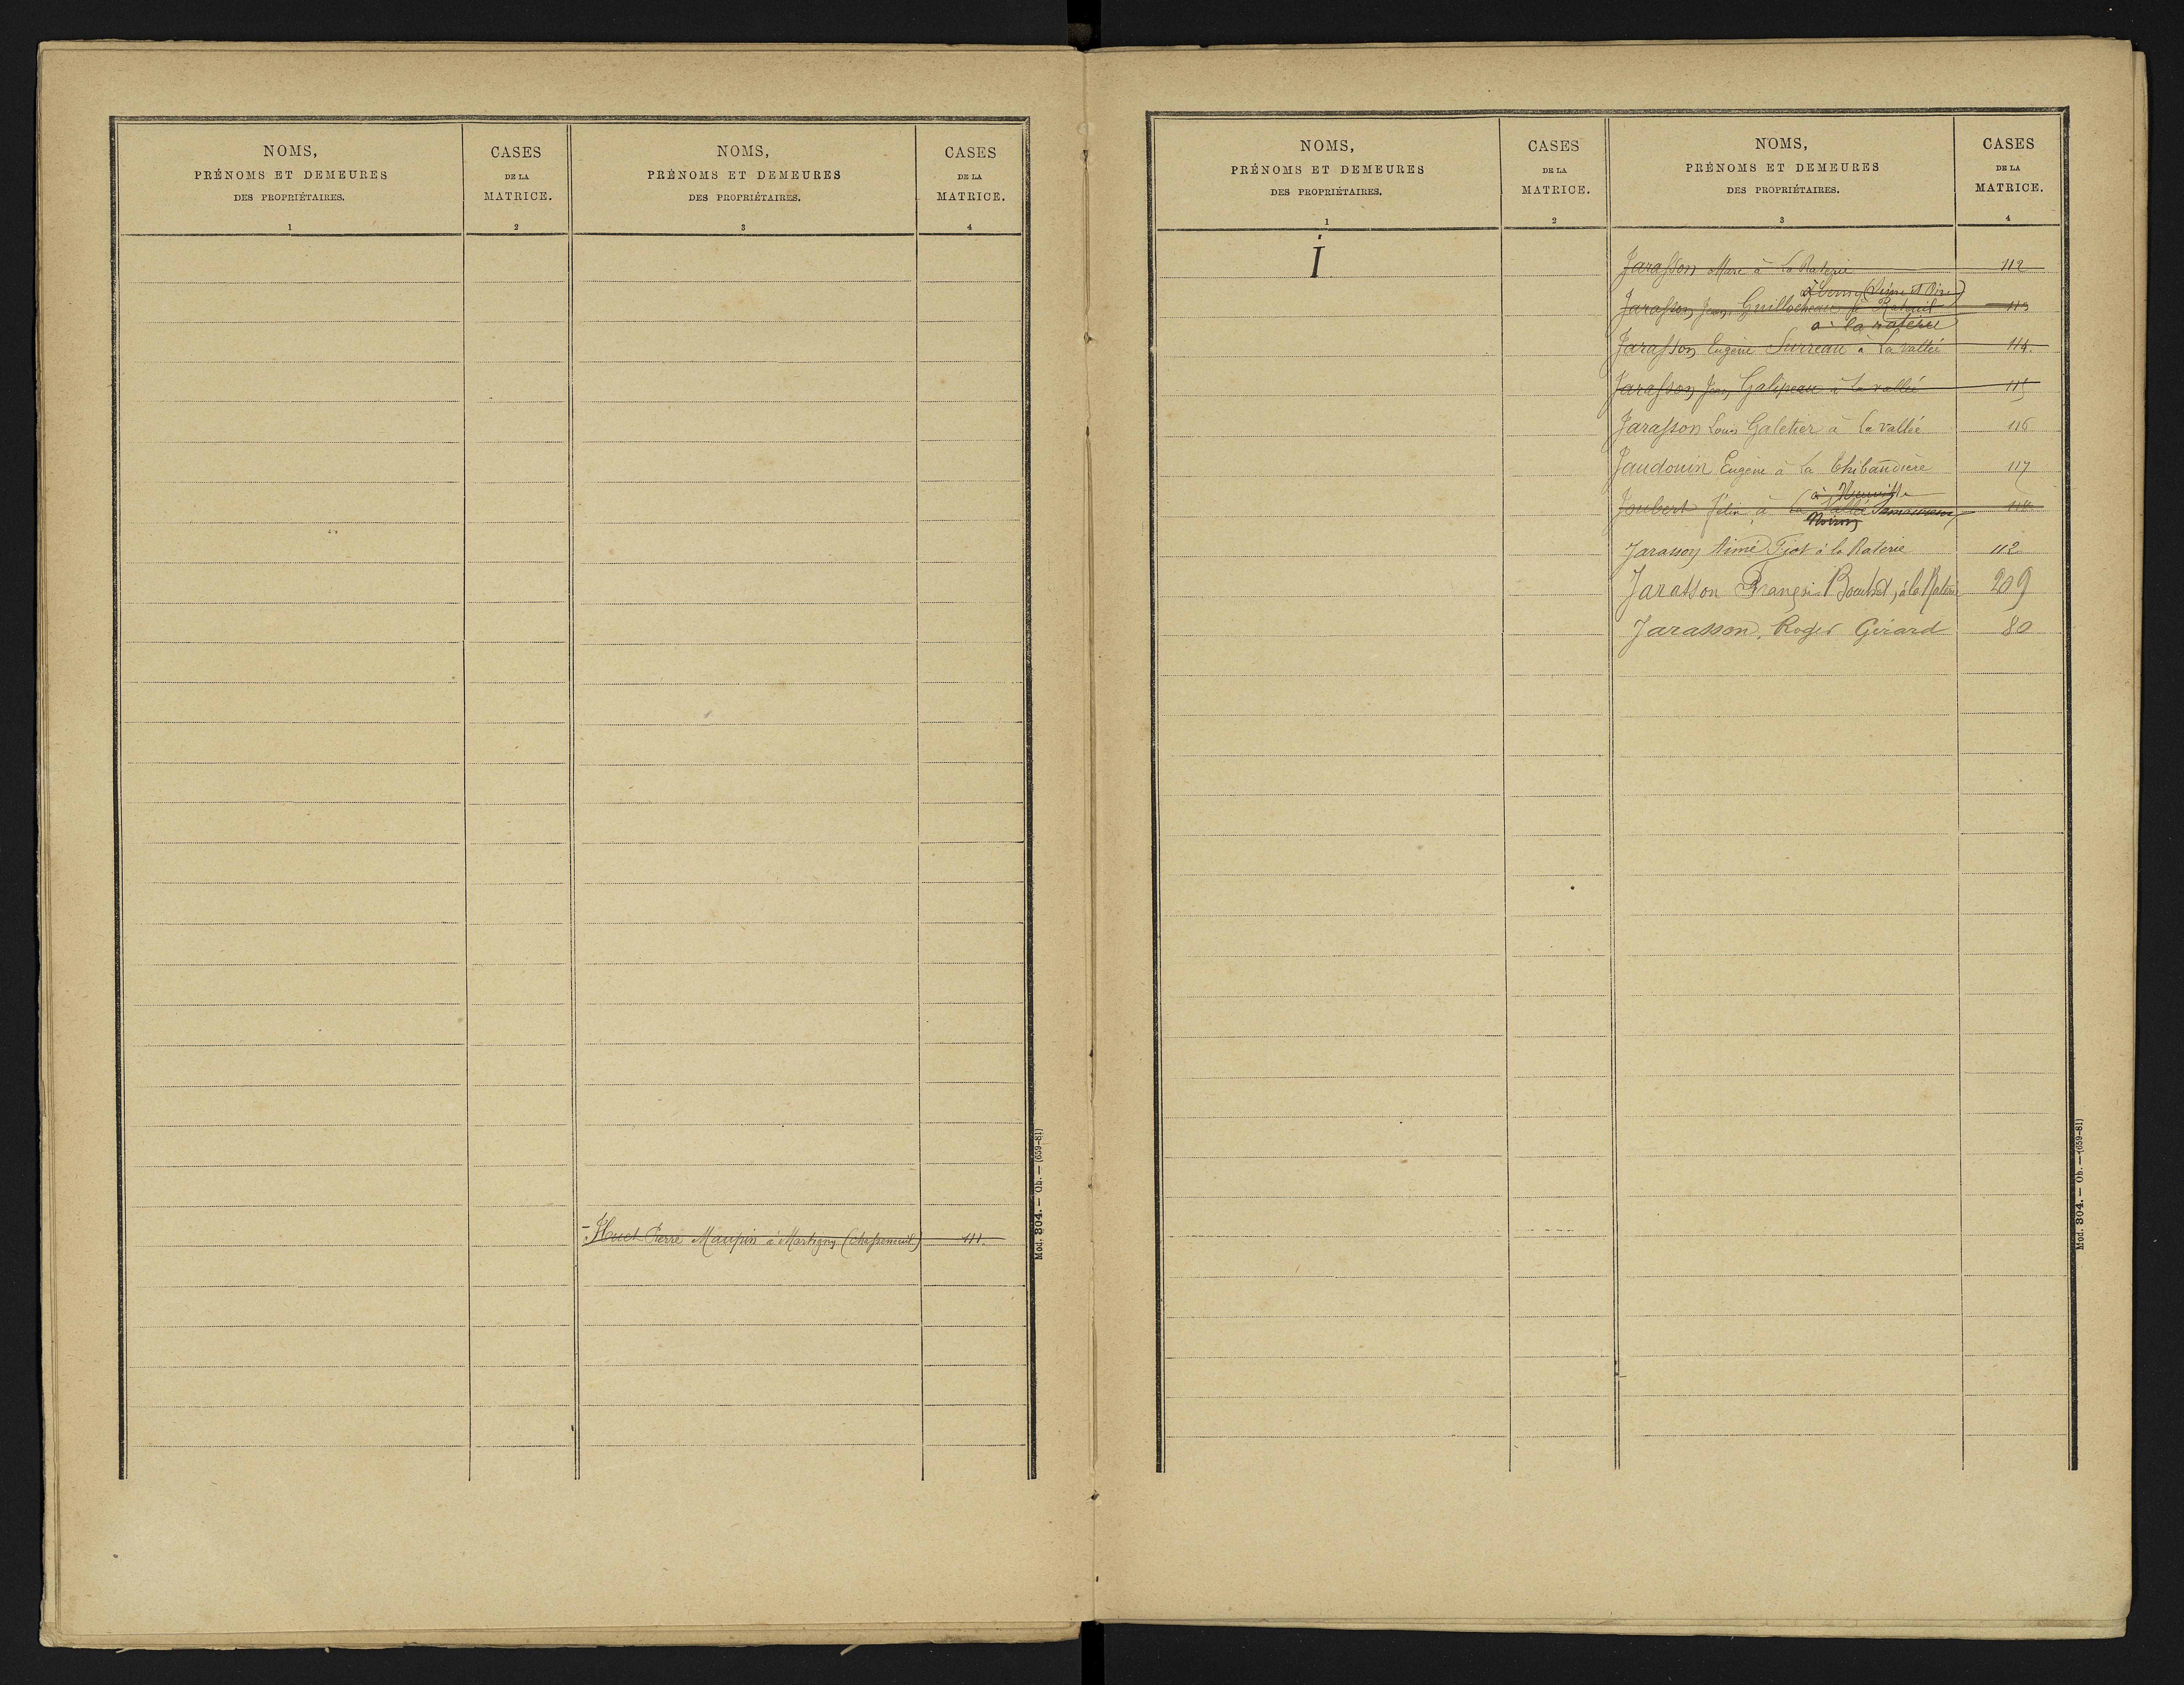 NOMS,
PRÉNOMS ET DEMEURES
DES PROPRIÉTAIRES.
1
CASES
DE LA
MATRICE.
2
NOMS,
PRÉNOMS ET DEMEURES
DES PROPRIÉTAIRES.
3
CASES
DE LA
MATRICE.
4
Huet Pierre Maupin à Martigny (Chasseneuil) 111.
Mod. 304. — Ob. — (659-81)
NOMS,
PRÉNOMS ET DEMEURES
DES PROPRIÉTAIRES.
1
CASES
DE LA
MATRICE.
2
NOMS,
PRÉNOMS ET DEMEURES
DES PROPRIÉTAIRES.
3
CASES
DE LA
MATRICE.
4
J
Jarasson Marc à La Raterie 112
(Seine et Oise)
Jarasson Jean Guillocheau 113
à la raterie
Jarasson Eugène Surreau à La vallée 114.
Jarasson Jean Galipeau à La vallée 115
Jarasson Louis Galetier à La vallée 116
Jaudouin Eugène à La Thibaudière 117
à Neuville
Joubert Félix à La Vallée 118
Noiron
Jarasson Aimé à la Raterie 112
Jarasson François à la Raterie 209
Jarasson, Roger Gérard 80
Mod. 304. — Ob. — (659-81)